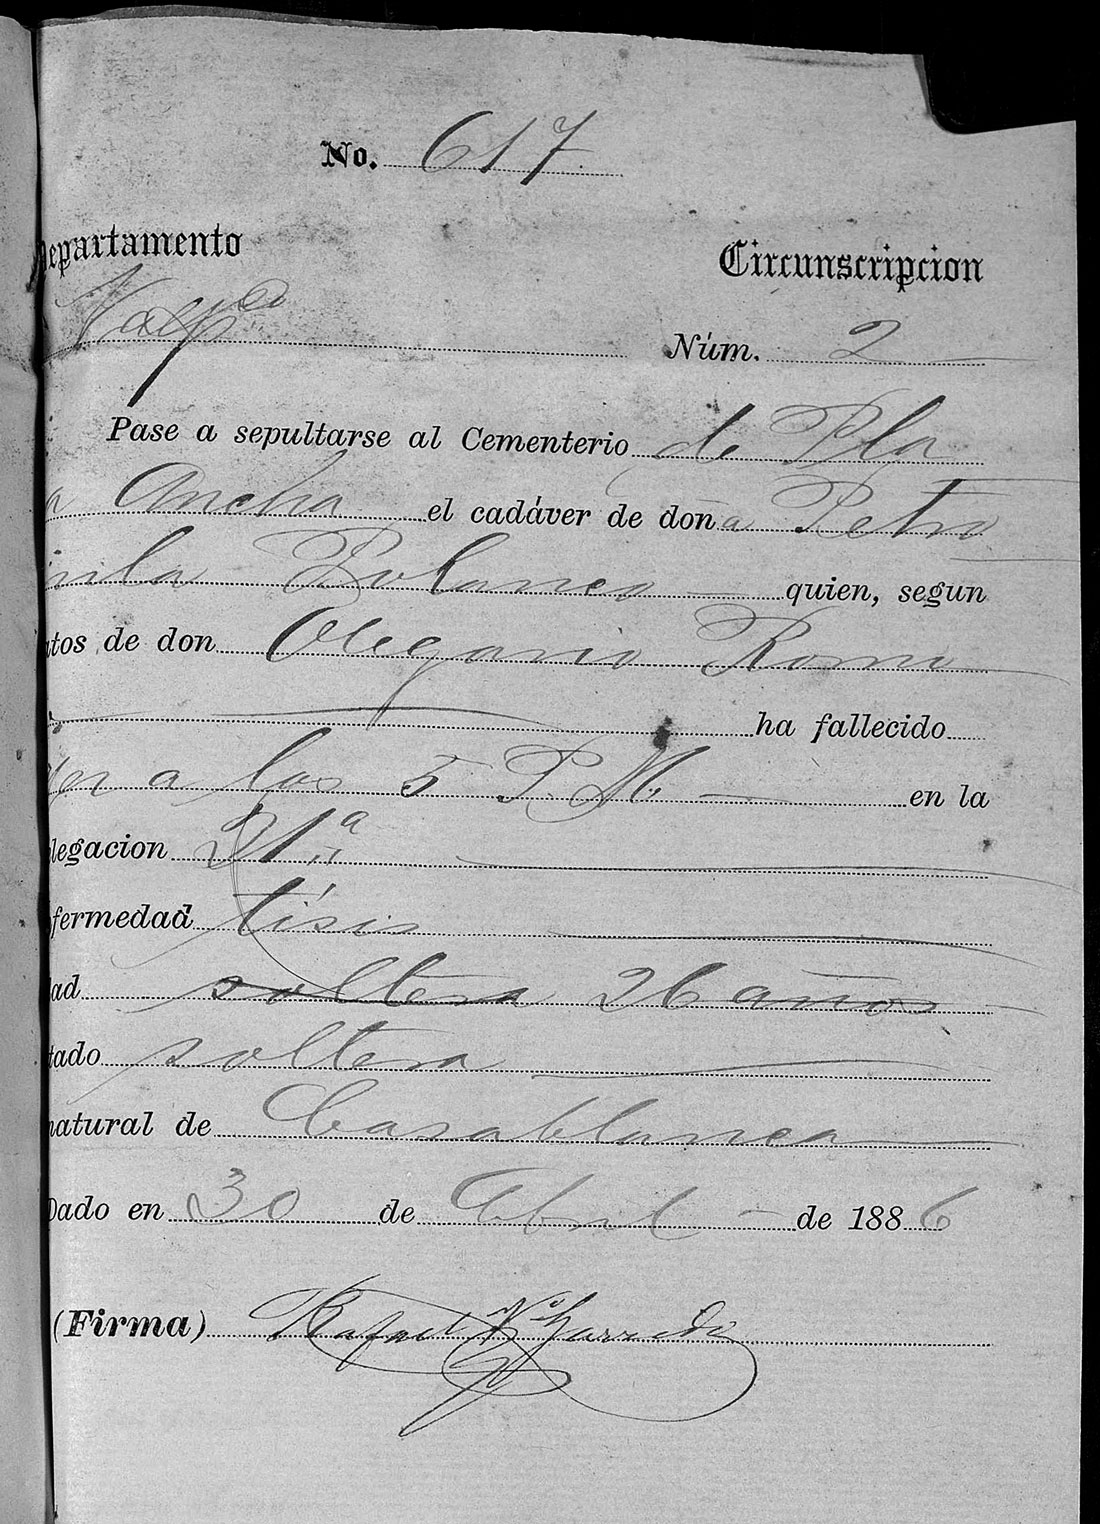 No. 617
Departamento
Circunscripcion
Valpso
Núm. 2
Pase a sepultarse al Cementerio de Pla
a Ancha el cadáver de dona Petro
nila Polanco quien, segun
atos de don Olegario Romo
ha fallecido
yer a las 5 P. M. en la
legacion 21a
fermedad tísis
ad soltera 26 años
tado soltera
natural de Casablanca
Dado en 30 de Abril de 1886
(Firma) Rafael N Garrido